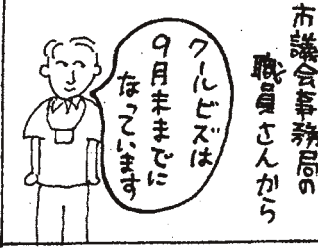 市議会事務局の
職員さんから
クールビズは
9月末までに
なっています